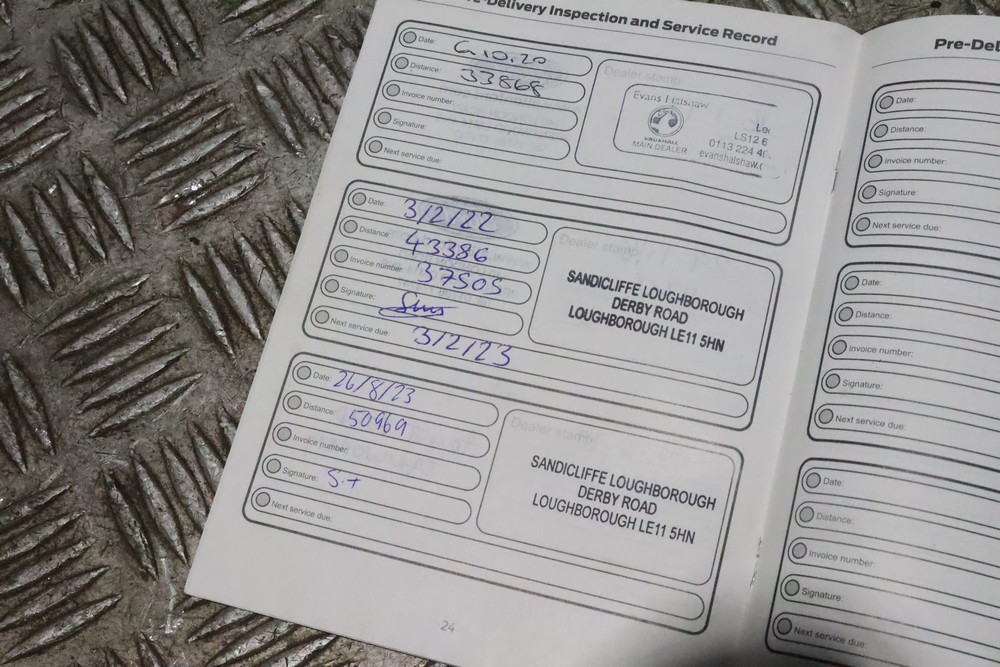 e-Delivery Inspection and Service Record
Date: 6.10.20
Distance: 33868
Invoice number:
Signature:
Next service due:
Dealer stamp
Evans Halshaw
VAUXHALL
MAIN DEALER
LS12 6
0113 224 4
evanshalshaw.c
Date: 3/2/22
Distance: 43386
Invoice number: 37505
Signature:
Next service due: 3/2/23
Dealer stamp
SANDICLIFFE LOUGHBOROUGH
DERBY ROAD
LOUGHBOROUGH LE11 5HN
Date: 26/8/23
Distance: 50969
Invoice number:
Signature: S.T
Next service due:
Dealer stamp
SANDICLIFFE LOUGHBOROUGH
DERBY ROAD
LOUGHBOROUGH LE11 5HN
24
Pre-Del
Date:
Distance:
Invoice number:
Signature:
Next service due:
Date:
Distance:
Invoice number:
Signature:
Next service due:
Date:
Distance:
Invoice number:
Signature:
Next service due: